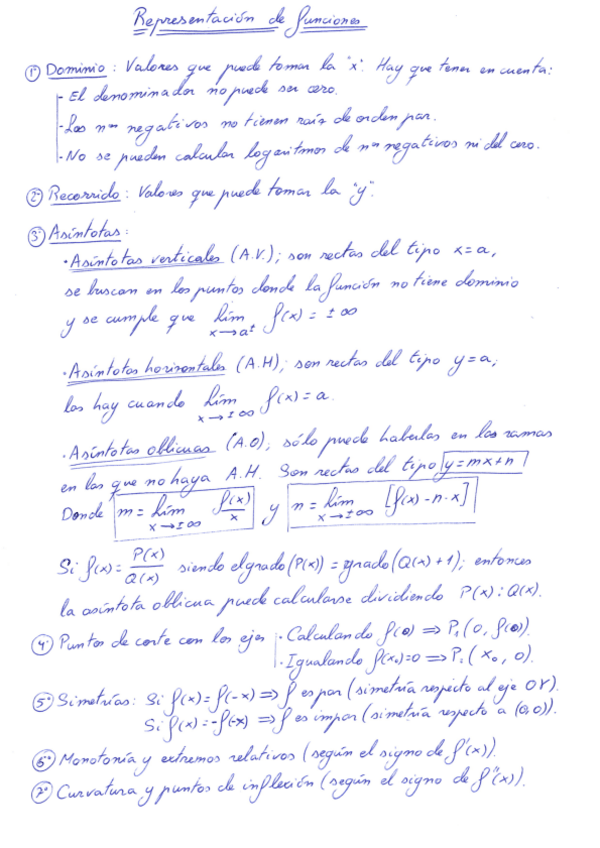 Representación de funciones
1º Dominio: Valores que puede tomar la "x". Hay que tener en cuenta:
- El denominador no puede ser cero.
- Los nos negativos no tienen raíz de orden par.
- No se pueden calcular logaritmos de nos negativos ni del cero.
2º Recorrido: Valores que puede tomar la "y".
3º Asíntotas:
· Asíntotas verticales (A.V.); son rectas del tipo x=a,
se buscan en los puntos donde la función no tiene dominio
y se cumple que lím x→a± f(x) = ±∞
· Asíntotas horizontales (A.H); son rectas del tipo y=a;
las hay cuando lím x→±∞ f(x)=a.
· Asíntotas oblicuas (A.O); sólo puede haberlas en las ramas
en las que no haya A.H. Son rectas del tipo y=mx+n
Donde m=lím x→±∞ f(x)/x y n=lím x→±∞ [f(x)-n·x]
Si f(x)=P(x)/Q(x) siendo el grado(P(x))=grado(Q(x)+1); entonces
la asíntota oblicua puede calcularse dividiendo P(x):Q(x).
4º Puntos de corte con los ejes · Calculando f(0) ⇒ P1(0, f(0)).
· Igualando f(x0)=0 ⇒ P2(x0, 0).
5º Simetrías: Si f(x)=f(-x) ⇒ f es par (simetría respecto al eje OY).
Si f(x)=-f(-x) ⇒ f es impar (simetría respecto a (0,0)).
6º Monotonía y extremos relativos (según el signo de f'(x)).
7º Curvatura y puntos de inflexión (según el signo de f''(x)).